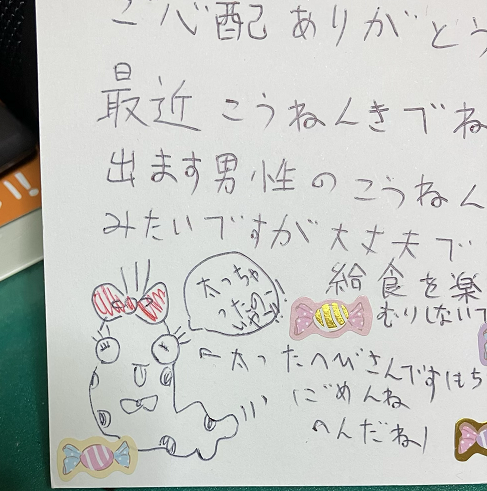 ご心配ありがとう
最近こうねんきでね
出ます男性のこうねん
みたいですが大丈夫で
給食を楽
むりしないで
太っちゃ
ったの
←太ったへびさんです(もち
ごめんね
のんだね)